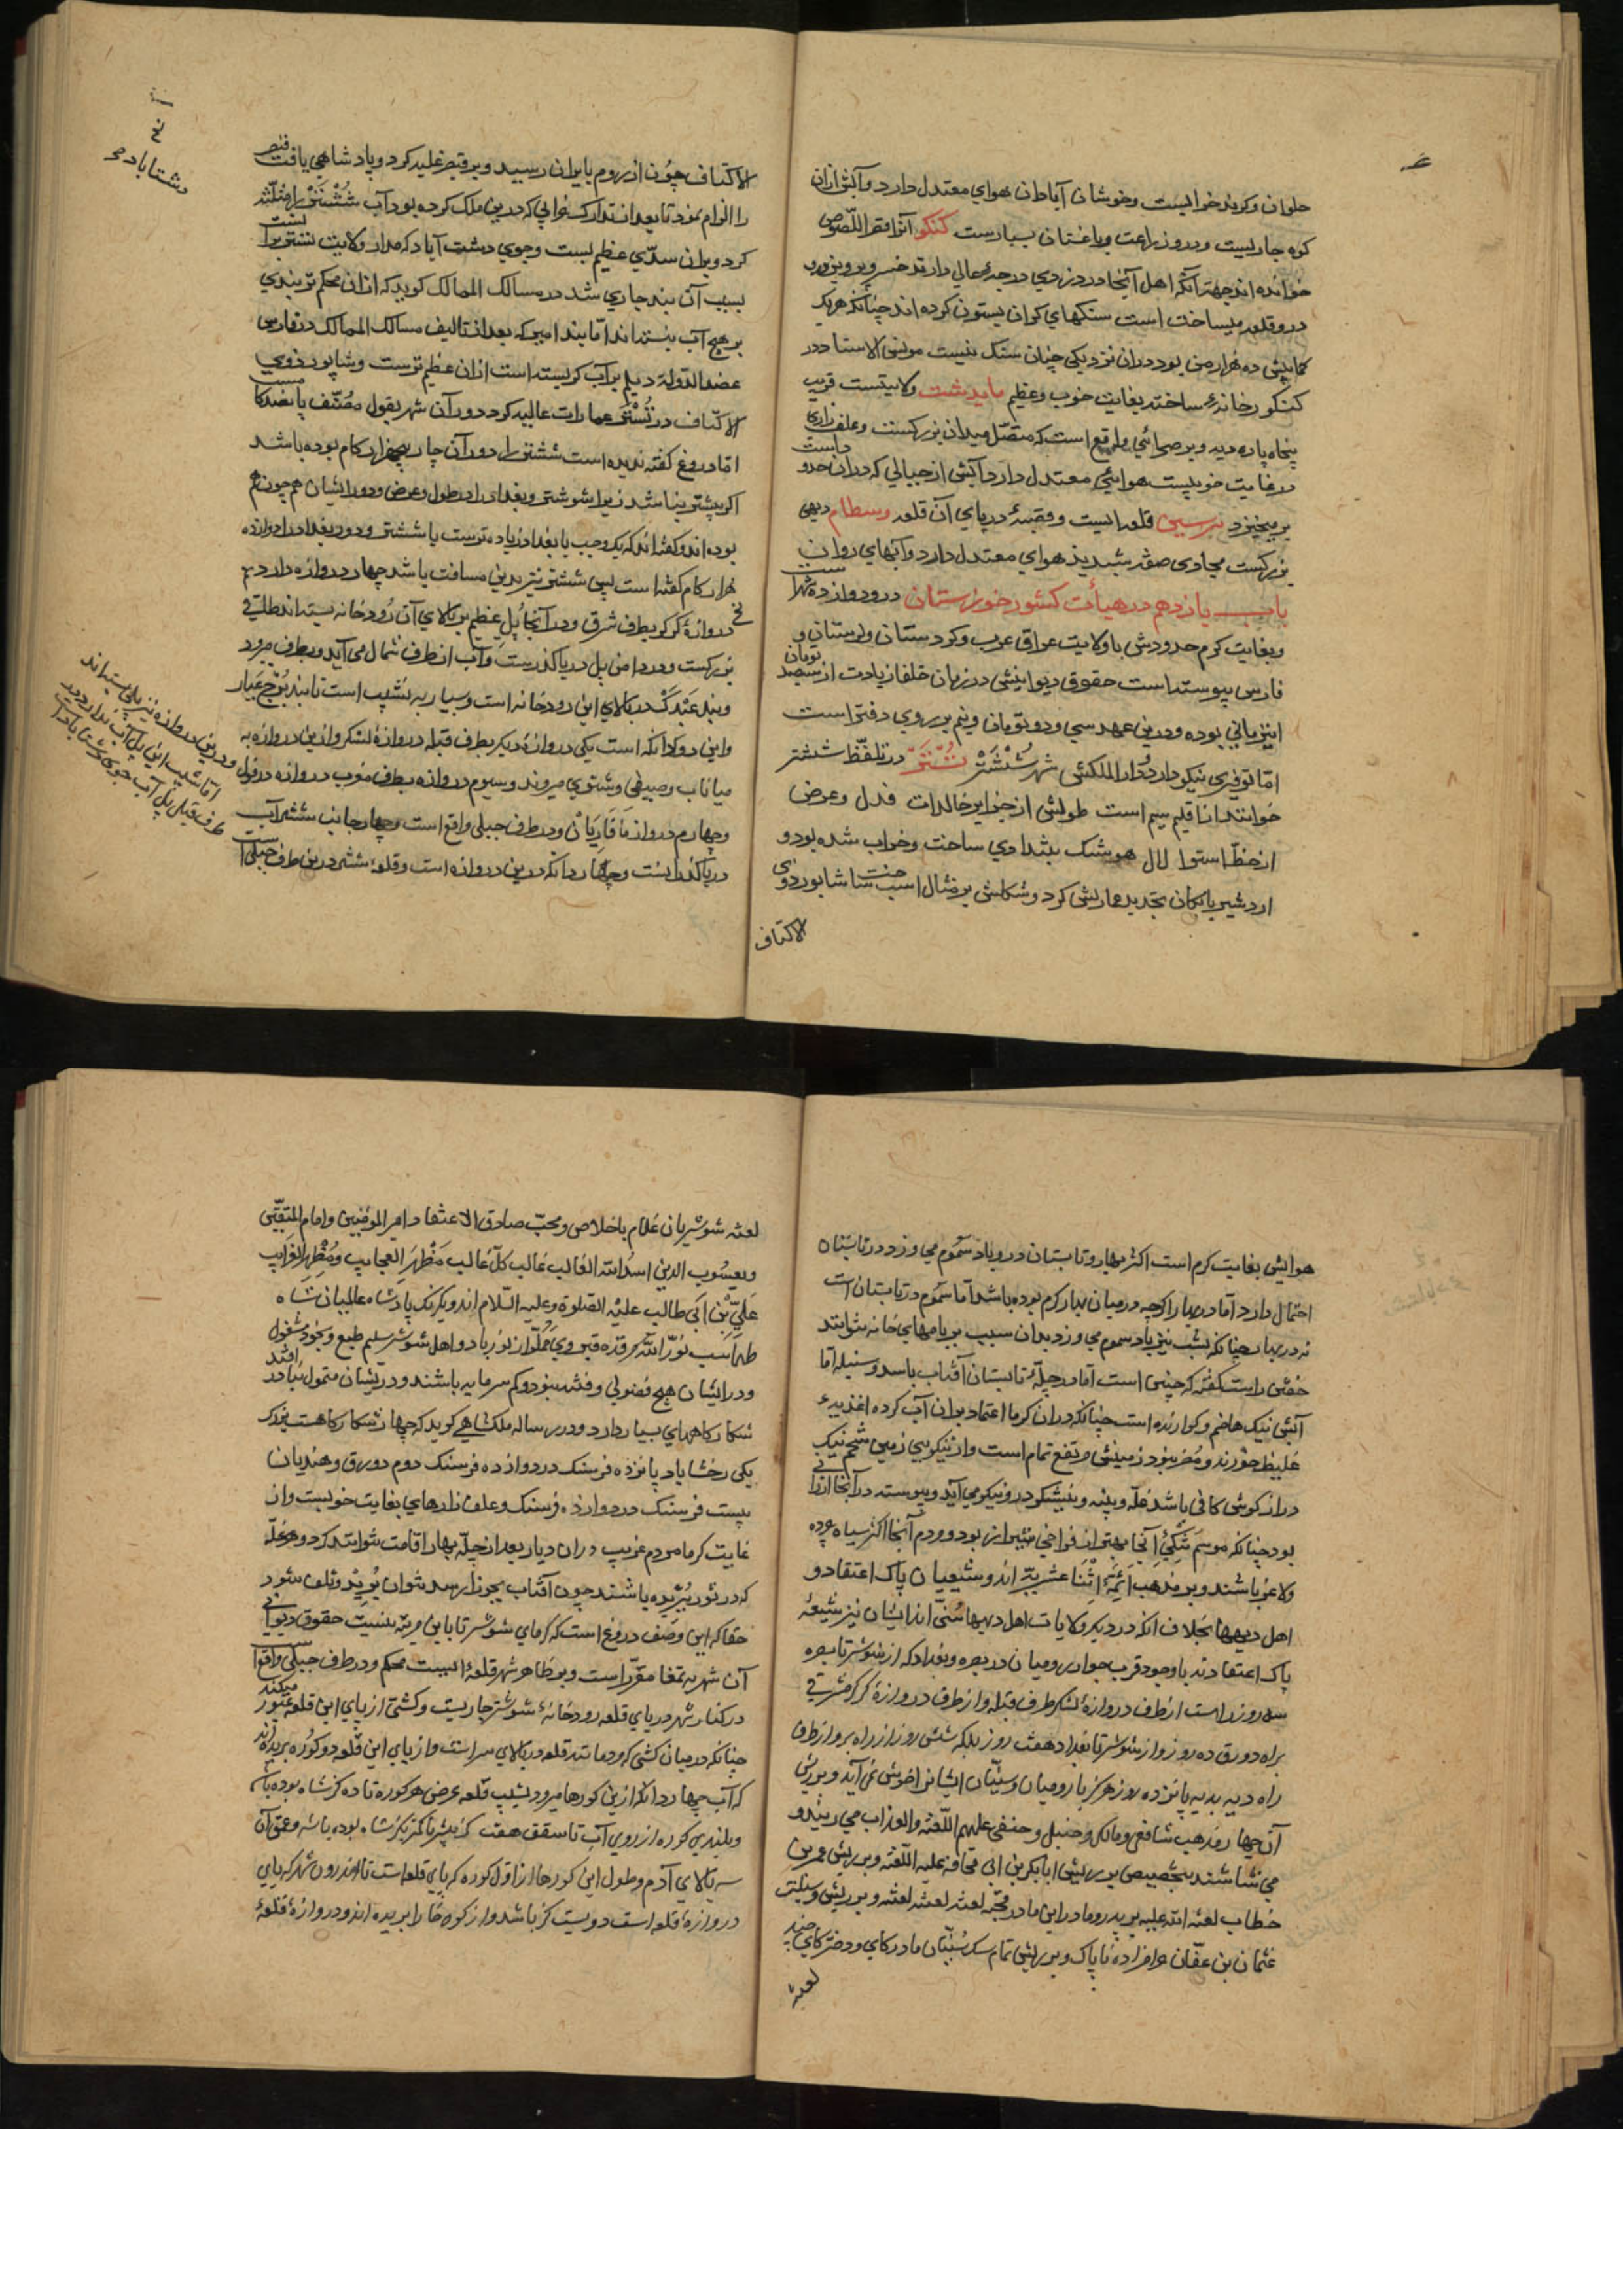 حلوان و کرند خرابست و خوشان آبادان هوای معتدل دارد و آبش از آن
کوه جاریست و درو زراعت و باغستان بسیارست کنکور آنرا قصر اللصوص
خوانده اند جهة آنکه اهل آنجا در دزدی درجهٔ عالی دارند خسرو پرویز درو
درو قلعه میساخت است سنکهای کران بستون کرده اند چنانکه هر یک
کمابیش ده هزار من بود در آن نزدیکی چنان سنک نیست مونس الاستاد در
کنکور خانهٔ ساخته بغایت خوب و عظیم مایدشت ولایتست قریب
پنجاه پاره دیه و بر صحرائی واقع است که متصل میدان بزرکست و علف زاری
در غایت خوبیست هوایی معتدل دارد آبش از جبالی که در آن حدود است
بر میخیزد هرسین قلعه ایست و قصبهٔ در پای آن قلعه وسطام دیهی
بزرکست محاذی صفه شبدیز هوای معتدل دارد و آبهای روان
باب یازدهم در هیأت کشور خوزستان درو دوازده شهر است
و بغایت کرم حدودش با ولایت عراق عرب و کردستان و لرستان و
فارس پیوسته است حقوق دیوانیش در زمان خلفا زیادت از سیصد تومان
این زمانی بوده و درین عهد سی و دو تومان و نیم بر روی دفتر است
اما توفیری نیکو دارد دار الملکش شهر شُشْتَرْ تُسْتَر در تلفظ ششتر
خوانند از اقلیم سیم است طولش از جزایر خالدات فدل و عرض
از خط استوا لال هوشنک پیشدادی ساخت و خراب شده بود و
اردشیر بابکان تجدید عمارتش کرد و شکلش بر مثال اسب ساخت شاپور ذوی
الاکتاف
الاکتاف چون از روم بایران رسید و بر قیصر غلبه کرد و پادشاهی یافت قیصر
را الزام نمود تا بعد از تدارک خرابی که درین ملک کرده بود آب ششتر را مثلثه
کرد و بران سدی عظیم بست و جوی دشت آباد که مدار ولایت تستر برانست
بسبب آن بند جاری شد در مسالک الممالک کوید که ازان محکم تر بندی
بر هیچ آب نبسته اند اما بند امیر که بعد از تالیف مسالک الممالک در فارس
عضد الدوله دیلم بر آب کر بسته است ازان عظیم ترست و شاپور ذوی
الاکتاف در تُسْتَر عمارات عالیه کرد دور آن شهر بقول مصنف پانصد کام است
اما دروغ کفته ندیده است ششتر را دور آن چار پنجهزار کام بوده باشد
اکر بیشتر نباشد زیرا شوشتر و بغداد را در طول و عرض و دور ایشان هم چون هم
بوده اند و کفته اند که یک وجب یا بغداد زیاده ترست یا ششتر و دور بغداد را دوازده
هزار کام کفته است پس ششتر نیز بدین مسافت باشد چهار دروازه دارد یکی
دروازهٔ کرکر بطرف شرق و در آنجا پل عظیم بر بالای آن رودخانه بسته اند
بزرکست و در دامن پل دریا کذرست و آب از طرف شمال می آید و بطرف میرود
و بند عَیْدَکْ در بالای این رودخانه است و بسیار به نشیب است تا بند بُرْج عَیَار
و این دو دانکه است یکی دروازهٔ دیکر بطرف قبله دروازهٔ لشکر و ازین دروازه به
میاناب و صیفی و شتوی میروند و سیوم دروازه بطرف مغرب دروازه دزفول
و چهارم دروازه مافاریان و در طرف جبلی واقع است و چهار جانب ششتر آب
دریا کذرانست و چهار دانکه درین دروازه است و قلعهٔ ششتر درین طرف جبلی است
دشتاباد
و درین دروازه نیز پلی بسته اند
اما نشیب این پل آب ندارد در
طرف قبل پل آب جوی دشتاباد است
هوایش بغایت کرم است اکثر بهار و تابستان درو باد سموم می وزد در تابستان
احتمال دارد اما در بهار اکرچه در میان بهار کرم بوده باشد اما سموم در تابستان است
نه در بهار چنانکه بشب نیز باد سموم می وزد بدان سبب بر بامهای خانه نتوانند
خفتن راست کفته که چنین است اما در چلهٔ تابستان آفتاب باسد و سنبله اما
آبش نیک هاضم و کوارنده است چنانکه دران کرما اعتماد بران آب کرده اغذیهٔ
غلیظ خورند و مضر نبود زمینش مرتفع تمام است و از نیکویی زمین شخم نیک
دراز کوش کافی باشد غله و پنبه و نیشکر درو نیکو می آید و پیوسته در آنجا ارزانی
بود چنانکه موسم تنکیِ آنجا بهتر از فراخی شیراز بود و مردم آنجا اکثر سیاه چرده
و لاغر باشند و بر مذهب ائمهٔ اثنا عشریّه اند و شیعیان پاک اعتقاد و
اهل دیهها بخلاف آنکه در دیکر ولایات اهل دیهها سنی اند ایشان نیز شیعهٔ
پاک اعتقادند با وجود قرب جوار رومیان در بصره و بغداد که از شوشتر تا بصره
سه روز راهست از طرف دروازهٔ لشکر طرف قبله و از طرف دروازهٔ کرکر مشرقی
براه دورق ده روز و از شوشتر تا بغداد هفت روز بلکه شش روز از راه بر و از طرف
راه دیه بدیه پانزده روز هرکز با رومیان و سنیان ایشانرا خوش نمی آید و بر ریش
آن چهار مذهب شافعی و مالکی و حنبل و حنفی علیهم اللعنة و العذاب می رینند و
می شاشند بتخصیص بر ریش ابابکر بن ابی قحافه علیه اللعنة و بر ریش عمر بن
خطاب لعنة الله علیه بر پدر و مادر این مادر قحبه لعنة لعنة لعنة و بر ریش و سبلت
عثمان بن عفان حرامزاده ناپاک و بر ریش تمام سک سنیان
لعنة
لعنة شوشتریان غلام باخلاص و محب صادق الاعتقاد امیر المؤمنین و امام المتقین
و یعسوب الدین اسد الله الغالب غالب کل غالب مَظْهَر العجایب و مُظْهِر الغرایب
عَلِیِّ بْنِ ابی طالب علیه الصلوة و علیه السلام اند و یکرنک پادشاه عالمیان شاه
طهماسب نوّر الله مرقده قبر وی مملو از نور باد و اهل شوشتر سلیم طبع و بخود مشغول
و در ایشان هیچ فضولی و فتنه نبود و کم سرمایه باشند و در ایشان متمول نادر افتد
شکارکاههای بسیار دارد و در رساله ملکشاهی کوید که چهار شکارکاهست بزرک
یکی رخشاباد پانزده فرسنک در دوازده فرسنک دوم دورق و هندیان
بیست فرسنک در دوازده فرسنک و علف زارهای بغایت خوبست و از
غایت کرما مردم غریب دران دیار بعد از چلهٔ بهار اقامت نتوانند کرد و هر غله
که در ثور بُریده باشند چون آفتاب بجوزا رسد نتوان بُرید و تلف شود
حقا که این وصف دروغ است که کرمای شوشتر تا باین مرتبه نیست حقوق دیوانی
آن شهر به تمغا مقرر است و بر ظاهر شهر قلعهٔ ایست محکم و در طرف جبلی واقع است
در کنار شهر در پای قلعه رودخانهٔ شوشتر جاریست و کشتی از پای این قلعه عبور میکند
چنانکه در میان کشی که در مانند قلعه در بالای سر است و از پای این قلعه دو کوره بریده اند
که آب چهار دانکه ازین کورها میرود بشیب قلعه عرض هر کوره تا ده کز شاه بوده باشد
و بلندی کوره از روی آب تا سقف هفت کز بیشتر یا کمتر بکز شاه بوده باشد و عمق آن
سه بالای آدم و طول این کورها از اول کوره که پای قلعه است تا اندرون شهر که پای
دروازهٔ قلعه است دویست کز باشد و از کوه خارا بریده اند و دروازهٔ قلعهٔ